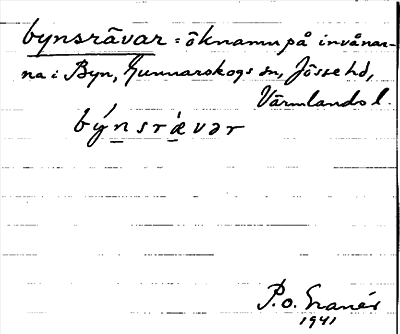 bynsrävar = öknamn på invånar-
na i Byn, Gunnarskogs sn, Jösse hd,
Värmlands l.
býnsrǽvər
P.o. Granér
1941